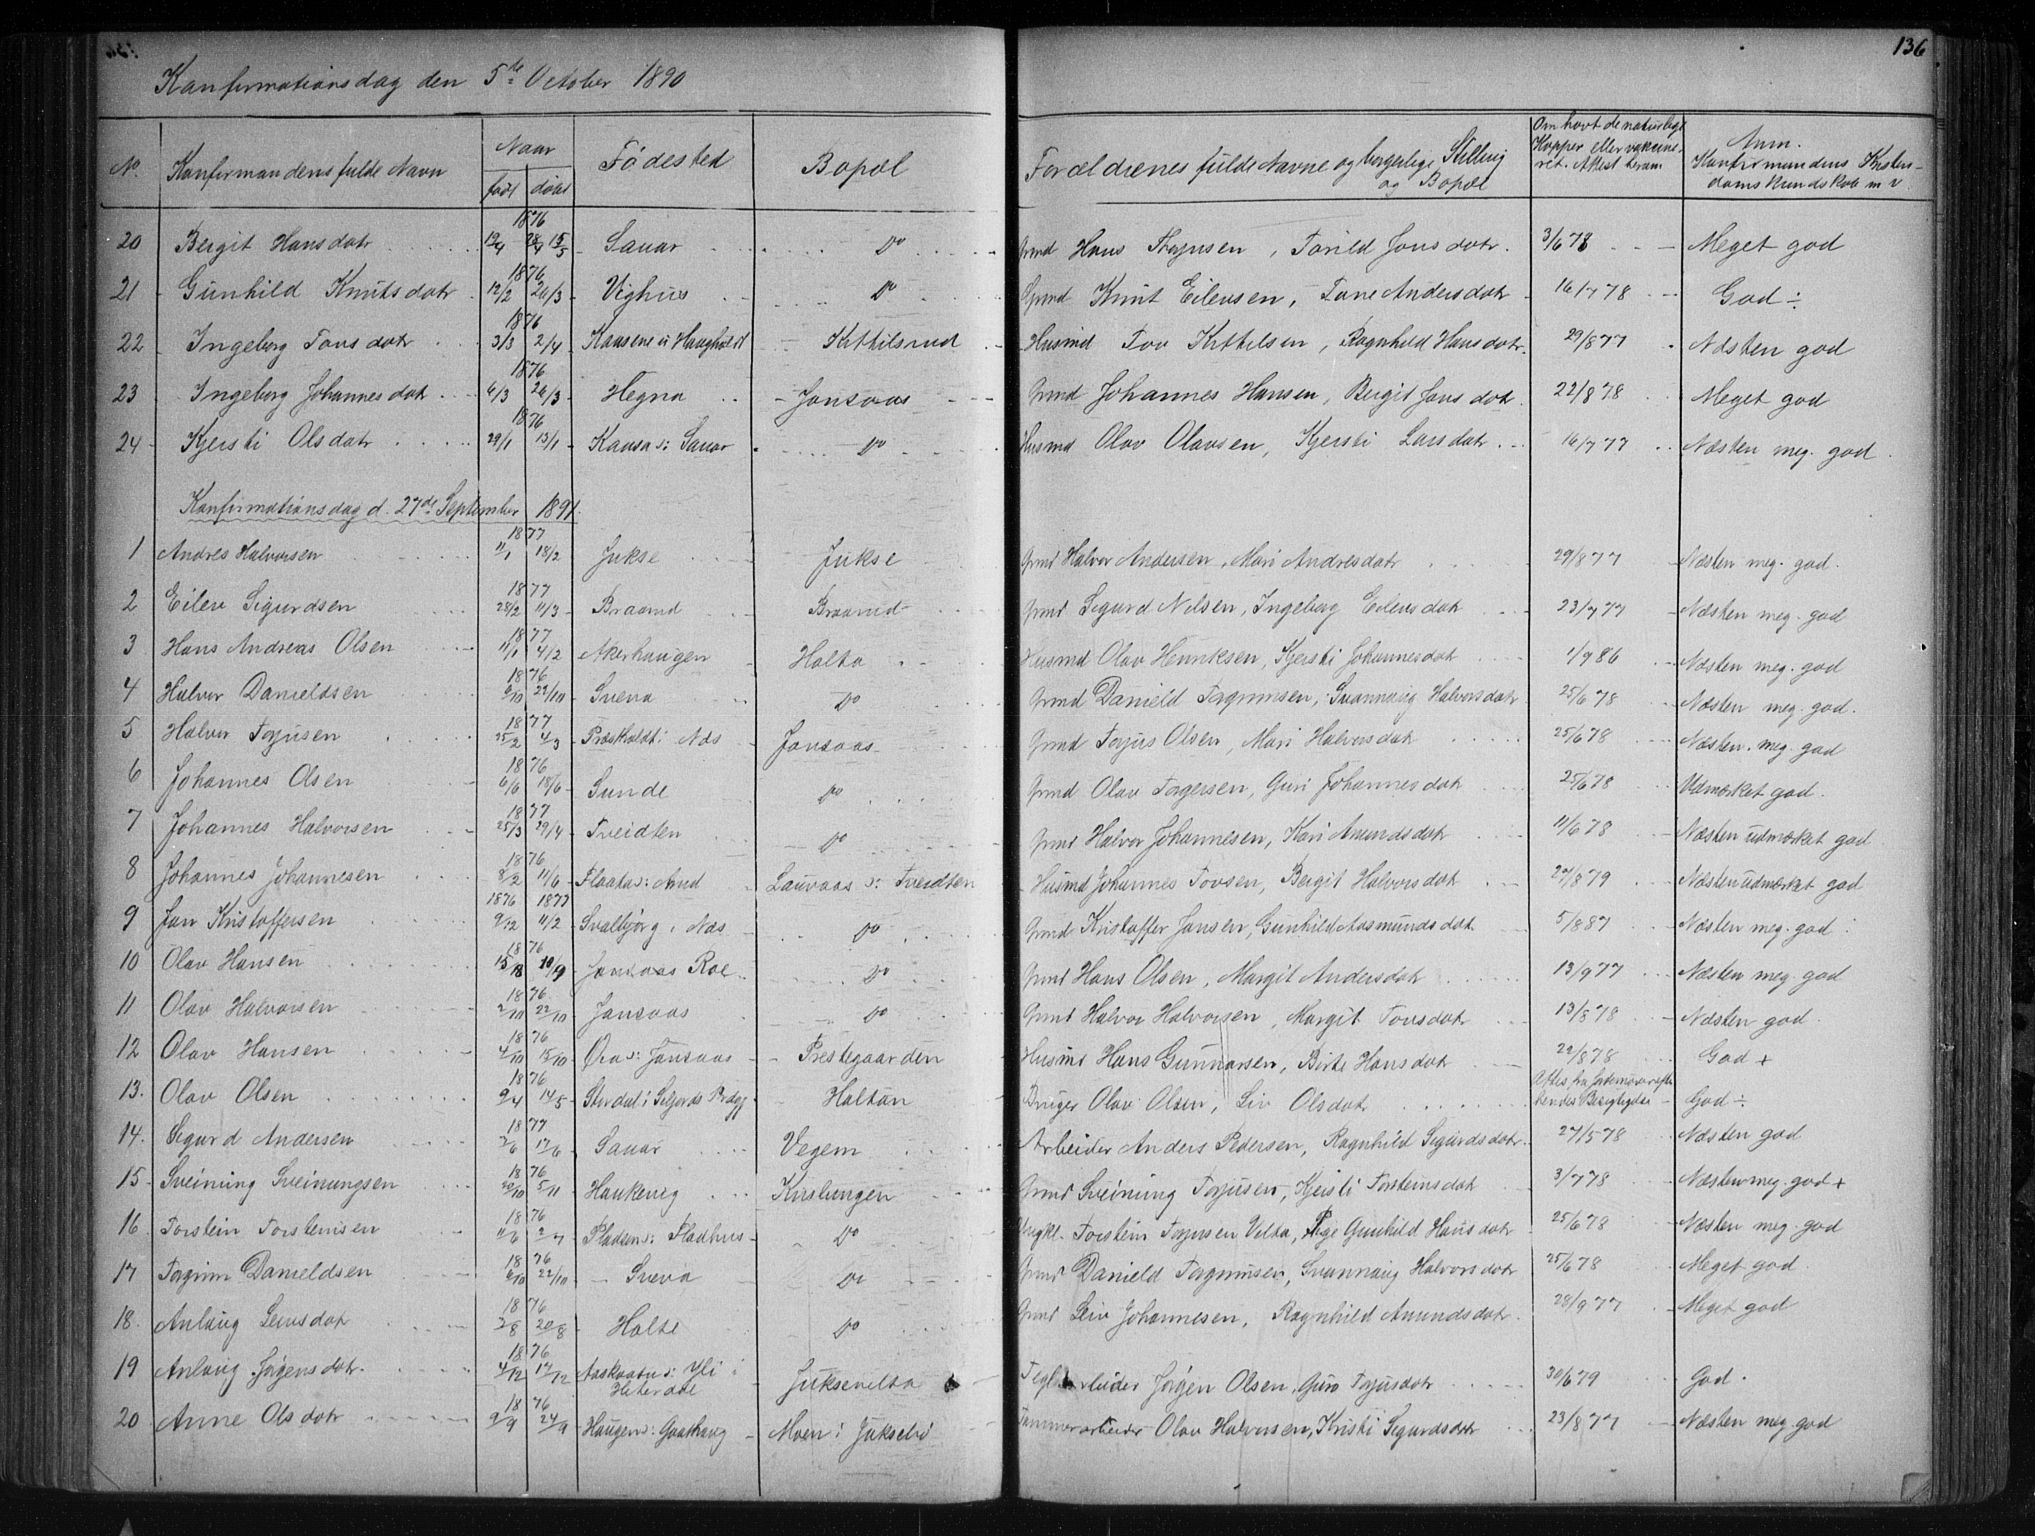 136
Konfirmationsdag den 5te October 1890
No. Konfirmandens fulde Navn Naar født døbt Fødested Bopæl Forældrenes fulde Navne og borgerlige Stilling og Bopæl Om havt de naturlige Kopper eller vakcineret. Attest derom Anm. Konfirmandens Kristendomskundskab m v
20 Bergit Hansdotr 1876 28/4 Sauar Do Grmd Hans Torjusen, Torild Jonsdotr. 3/6 78 Meget god
21 Gunhild Knutsdotr 1876 12/2 26/3 Vighus Do Grmd Knut Eilevsen, Tone Andersdotr 16/7 78 God ÷
22 Ingeborg Tovsdotr 1876 3/3 2/4 Kaasene u Haugholdt Kittilsrud Husmd Tov Kittilsen, Ragnhild Hansdotr. 29/8 77 Næsten god
23 Ingeborg Johannesdotr 1876 6/3 26/3 Hegna Jonsaas Grmd Johannes Hansen, Bergit Jonsdotr 22/8 78 Meget god
24 Kjersti Olsdotr 1876 29/1 13/1 Kaasa s: Sauar Do Husmd Olav Olavsen, Kjersti Larsdotr 16/7 77 Næsten meg. god
Konfirmationsdag d. 27de September 1891
1 Andres Halvorsen 1877 11/1 18/2 Jukse Jukse Grmd Halvor Andersen, Mari Andresdotr 29/8 77 Næsten meg. god.
2 Eilev Sigurdsen 1877 28/2 11/3 Braamd Braamd Grmd Sigurd Nilsen, Ingeborg Eilevsdotr 23/7 77 Næsten meg. god
3 Hans Andreas Olsen 1877 11/1 4/2 Akerhaugen Holta Husmd Olav Henriksen, Kjersti Johannesdotr 1/7 86 Næsten meg. god
4 Halvor Danieldsen 1876 6/10 22/10 Sveva Do Grmd Danield Torgrimsen, Svannaug Halvorsdotr 25/6 78 Næsten meg. god.
5 Halvor Torjusen 1877 25/2 4/3 Præsthaldt i Næs Jonsaas Grmd Torjus Olsen, Mari Halvorsdotr 25/6 78 Næsten. meg. god
6 Johannes Olsen 1876 6/6 18/6 Sunde Do Grmd Olav Torgersen, Guri Johannesdotr 25/6 78 Udmærket god.
7 Johannes Halvorsen 1877 25/3 29/4 Tveidten Do Grmd Halvor Johannesen, Kari Amundsdotr 11/6 78 Næsten udmærket god
8 Johannes Johannesen 1876 8/2 11/6 Flaata s: Aarud Lauvaas s: Tveidten Husmd Johannes Tovsen, Bergit Halvorsdotr 27/8 79 Næsten udmærket god
9 Jon Kristoffersen 1876 9/12 1877 11/2 Svalbjørg i Næs Do Grmd Kristoffer Jonsen, Gunhild Aasmundsdotr. 5/8 87 Næsten meg. god
10 Olav Hansen 1876 Jonsaas Roe Do Grmd Hans Olsen, Margit Andersdotr 13/9 77 Næsten meg god
11 Olav Halvorsen 1876 2/10 22/10 Jonsaas Do Grmd Halvor Halvorsen, Margit Tovsdotr 13/8 78 Næsten god.
12 Olav Hansen 1876 4/10 15/10 Øra s: Jonsaas Prestegaarden Husmd Hans Gunnarsen, Birte Hansdotr 22/8 78 God +
13. Olav Olsen 1876 9/4 14/5 i Seljords Holtan Bruger Olav Olsen, Liv Olsdotr God ÷
14. Sigurd Andersen 1877 2/6 17/6 Sauar Vegem Arbeider Anders Pedersen, Ragnhild Sigurdsdotr. 27/5 78 Næsten god
15 Sveinung Sveinungsen 1876 22/10 5/11 Haukenig Kirsbungen Grmd Sveinung Torjusen, Kjersti Torsteinsdotr 3/7 78 Næsten meg. god +
16 Torstein Torsteinsen 1876 11/6 2/7 Pladsen s: Fladhus Do Ungkl. Torstein Torjusen Velta, Pige Gunhild Hansdotr 25/6 78 Næsten meg. god
17 Torgrim Danieldsen 1876 6/10 22/10 Sveva Do Grmd Danield Torgrimsen, Svannaug Halvorsdotr 25/6 78 Meget god.
18. Anlaug Leivsdotr 1876 2/8 20/8 Holte Do Grmd Leiv Johannesen, Ragnhild Amundsdotr. 28/9 77 Meget god
19 Anlaug Jørgensdotr. 1876 4/12 17/12 i Hiterdal Juksevelta Teglarbeider Jørgen Olsen, Guro Torjusdotr 30/6 79 God.
20 Anne Olsdotr 1876 9/9 24/9 Haugen s: Gaathaug Moen i Juksebø Tømmerarbeider Olav Halvorsen, Kristi Sigurdsdotr 23/8 77 Næsten meg. god